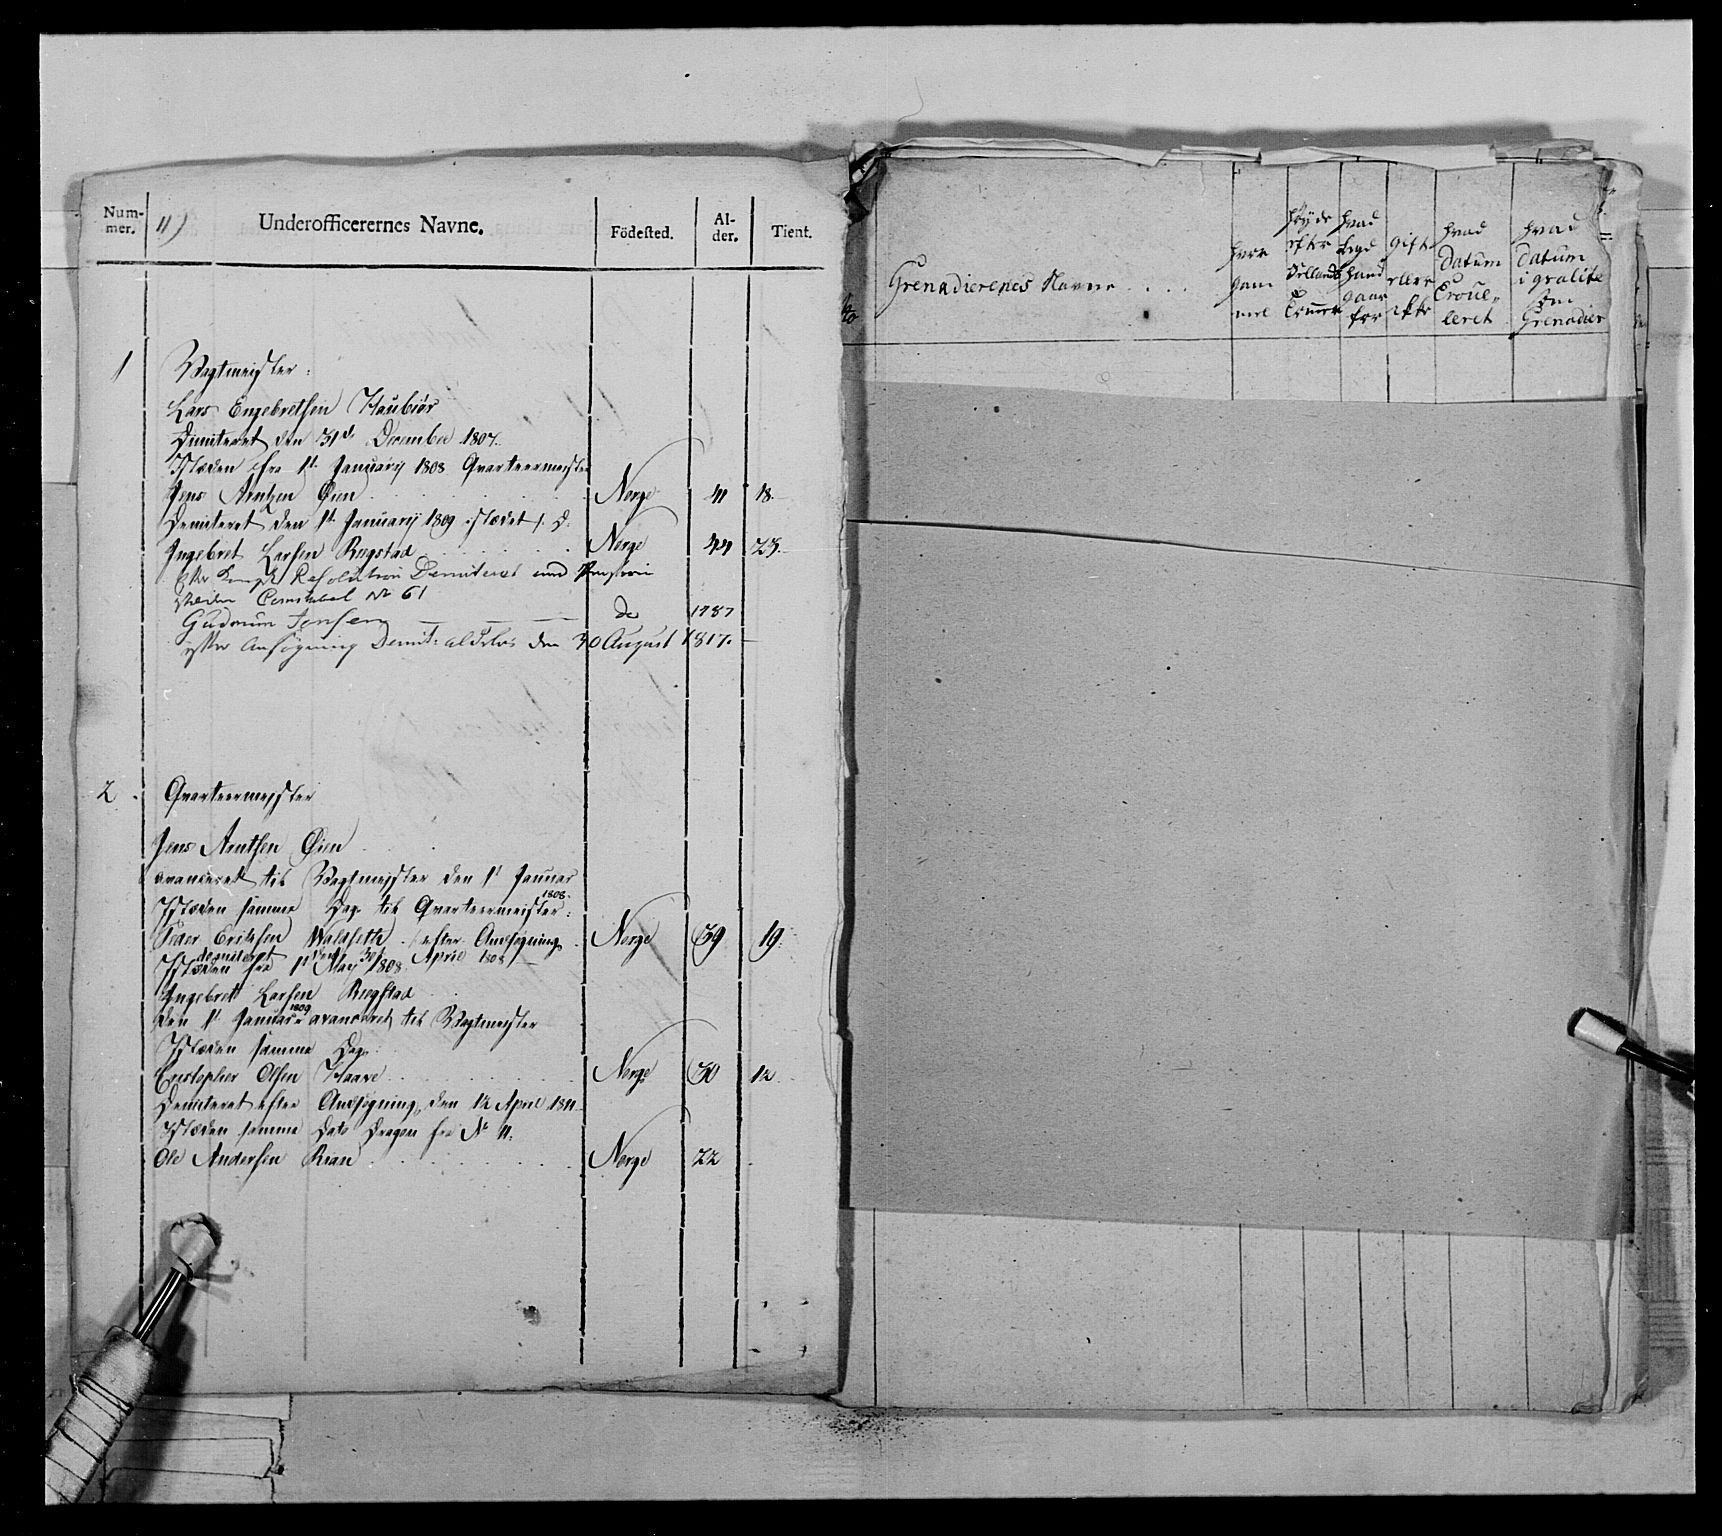 Num-
mer.
11)
Underofficerernes Navne.
Födested.
Al-
der.
Tient.
1
Wagtmeister:
Lars Engebretsen Haubiör
Dimiteret den 31de December 1807.
Istæden fra 1ste Januarij 1808 Quarteermester
Jens Arntzen Øien Norge 41 18.
Demiteret den 1ste Januarij 1809 istædet
Ingebret Larsen Rogstad Norge 44 23.
efter Kongl: Resolution Demiteret med Pension
istæden Constabel No 61
Gudmun Jensen do 1787
efter Ansøgning Demit: aldeles den 30 August 1817.
2.
Quarteermester
Jens Arntsen Øien
avanceret til Wagtmester den 1ste Januar 1808.
Istæden samme Dag til Quarteermeister:
Peder Eriksen Waldseth efter Ansögning Norge 39 19.
demiteret den 30te April 1808
Istæden fra 1ste May 1808
Ingebret Larsen Rogstad
den 1ste Januar 1809 avanceret til Wagtmester
Istæden samme Dag:
Cristopher Olsen Haave Norge 30 12
Demiteret efter Ansøgning den 12 April 1811.
Istæden samme Dato Dragon fra No 11.
Ole Andersen Rian Norge 22
Grenadierenes Navne
hvor
gam
mel
høyde
efter
Sellands
Tommer
hvad
Lægd
hand
gaar
for
gift
eller
ikke
hvad
Datum
Enroul-
leret
hvad
Datum
i qvalite
som
Grenadier